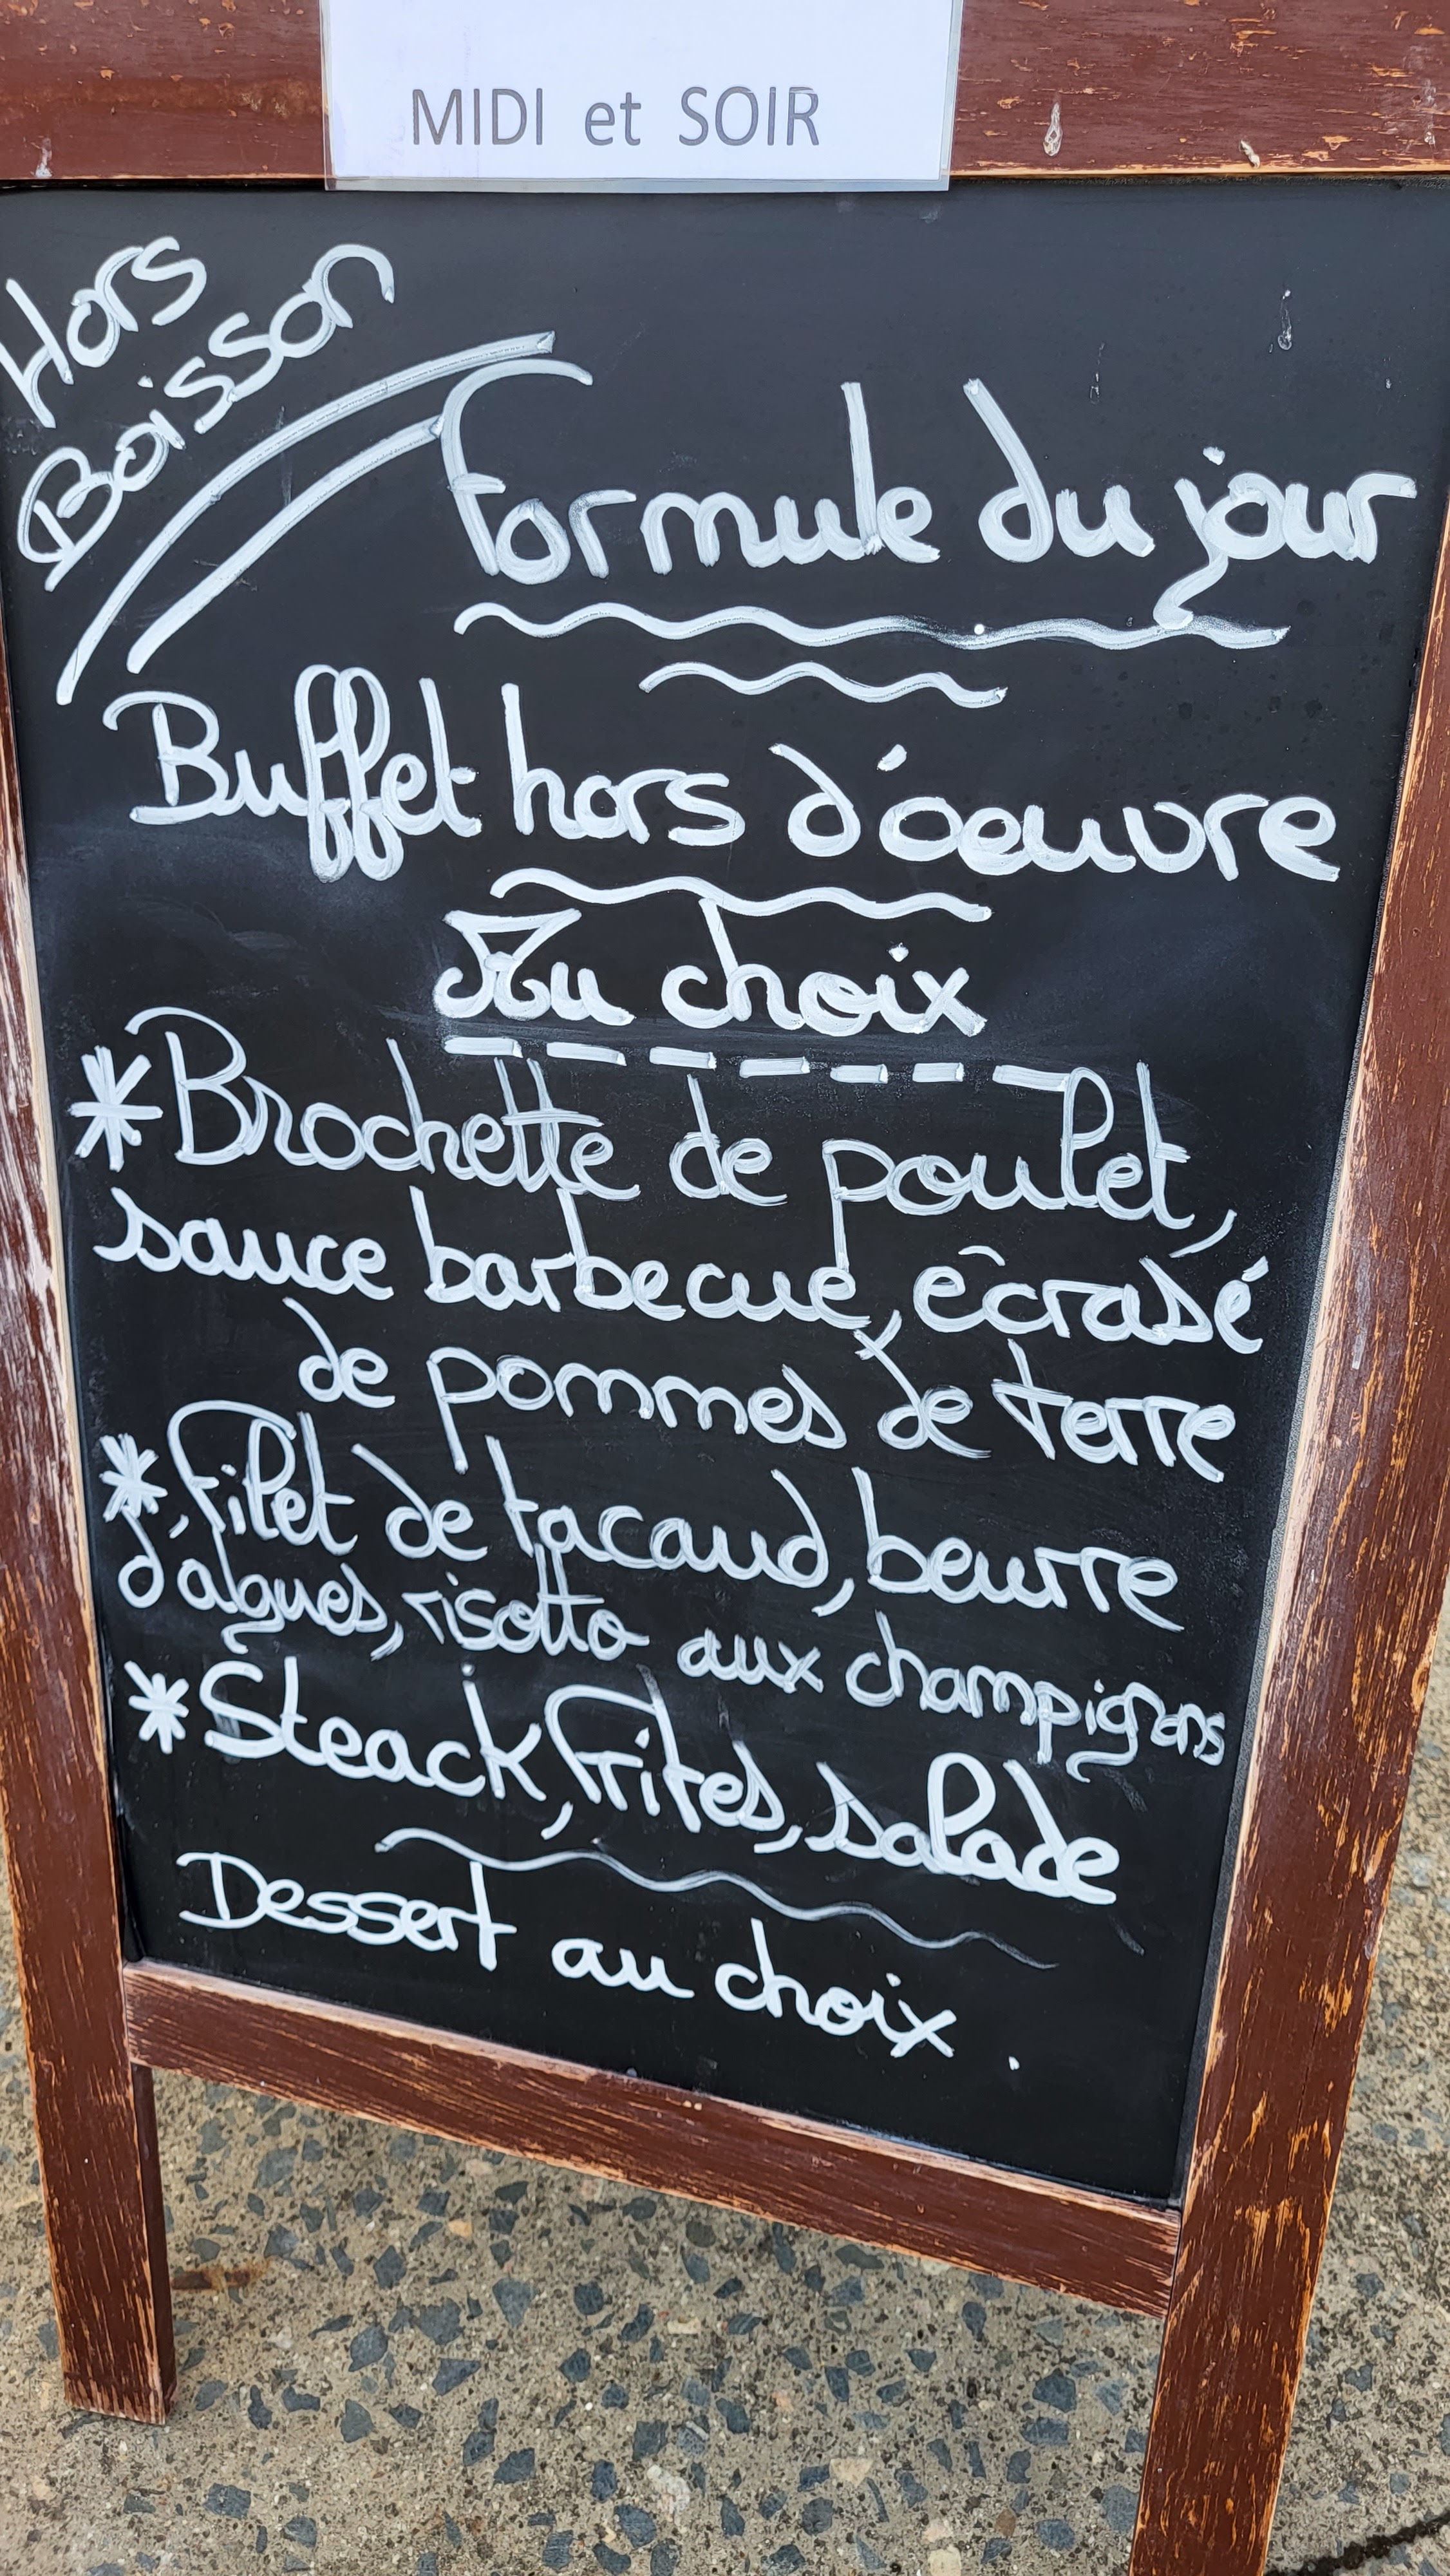 MIDI et SOIR
Hors
Boisson
Formule du jour
Buffet hors d'oeuvre
Au choix
* Brochette de poulet,
sauce barbecue, écrasé
de pommes de terre
* Filet de tacaud, beurre
d'algues, risotto aux champignons
* Steack, Frites, salade
Dessert au choix.